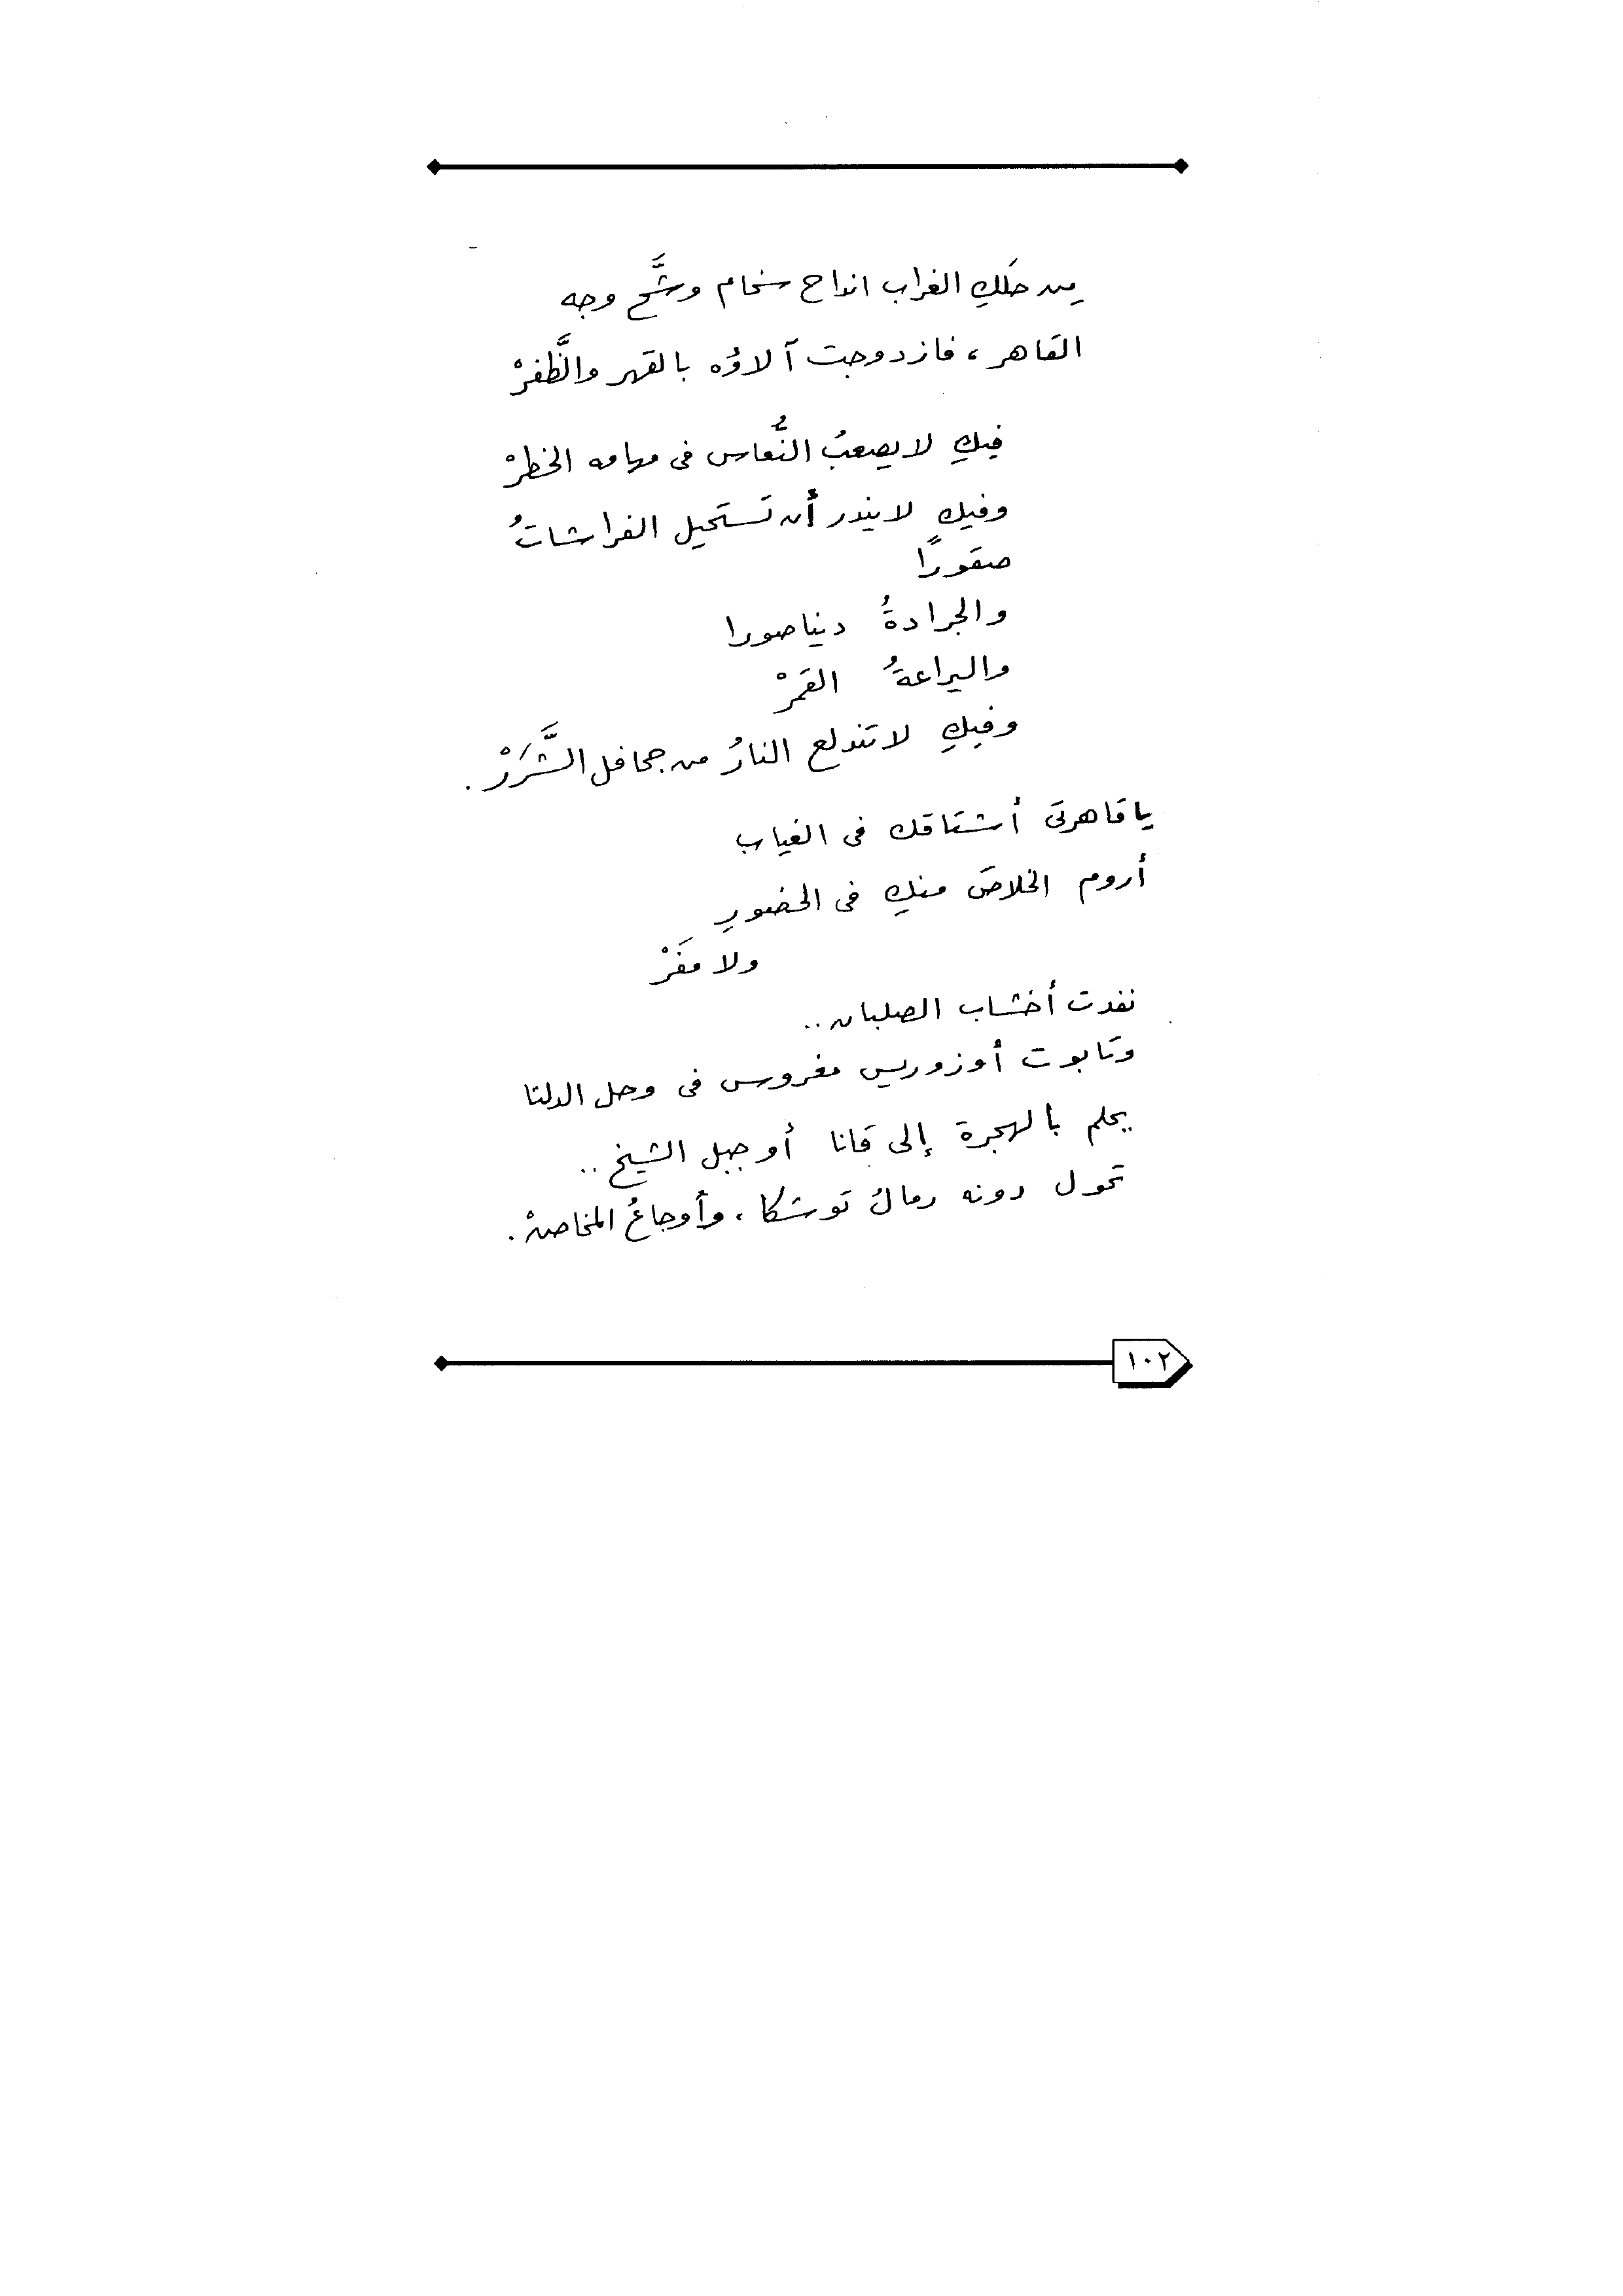 مِن حلَكِ الغراب انداح سخام وشَّح وجه
القاهر ، فازدوجت آلاؤه بالقهر والظَّفرْ
فيكِ لا يصعبُ النُّعاس فى مهامه الخطرْ
وفيكِ لا يندر أن تَستَحيل الفراشاتُ
صقورًا
والجرادةُ ديناصورا
واليراعةُ القمرْ
وفيكِ لا تندلع النارُ من جحافل الشَّرَرْ .
يا قاهرتى أشتاقك فى الغياب
أروم الخلاصَ منكِ فى الحضورِ
ولا مفَرْ
نفدت أخشاب الصلبان ..
وتابوت أوزوريس مغروس فى وحل الدلتا
يحلم بالهجرة إلى قانا أو جبل الشيخ ..
تحول دونه رمالُ توشكا ، وأوجاعُ المخاصهْ .
١٠٢